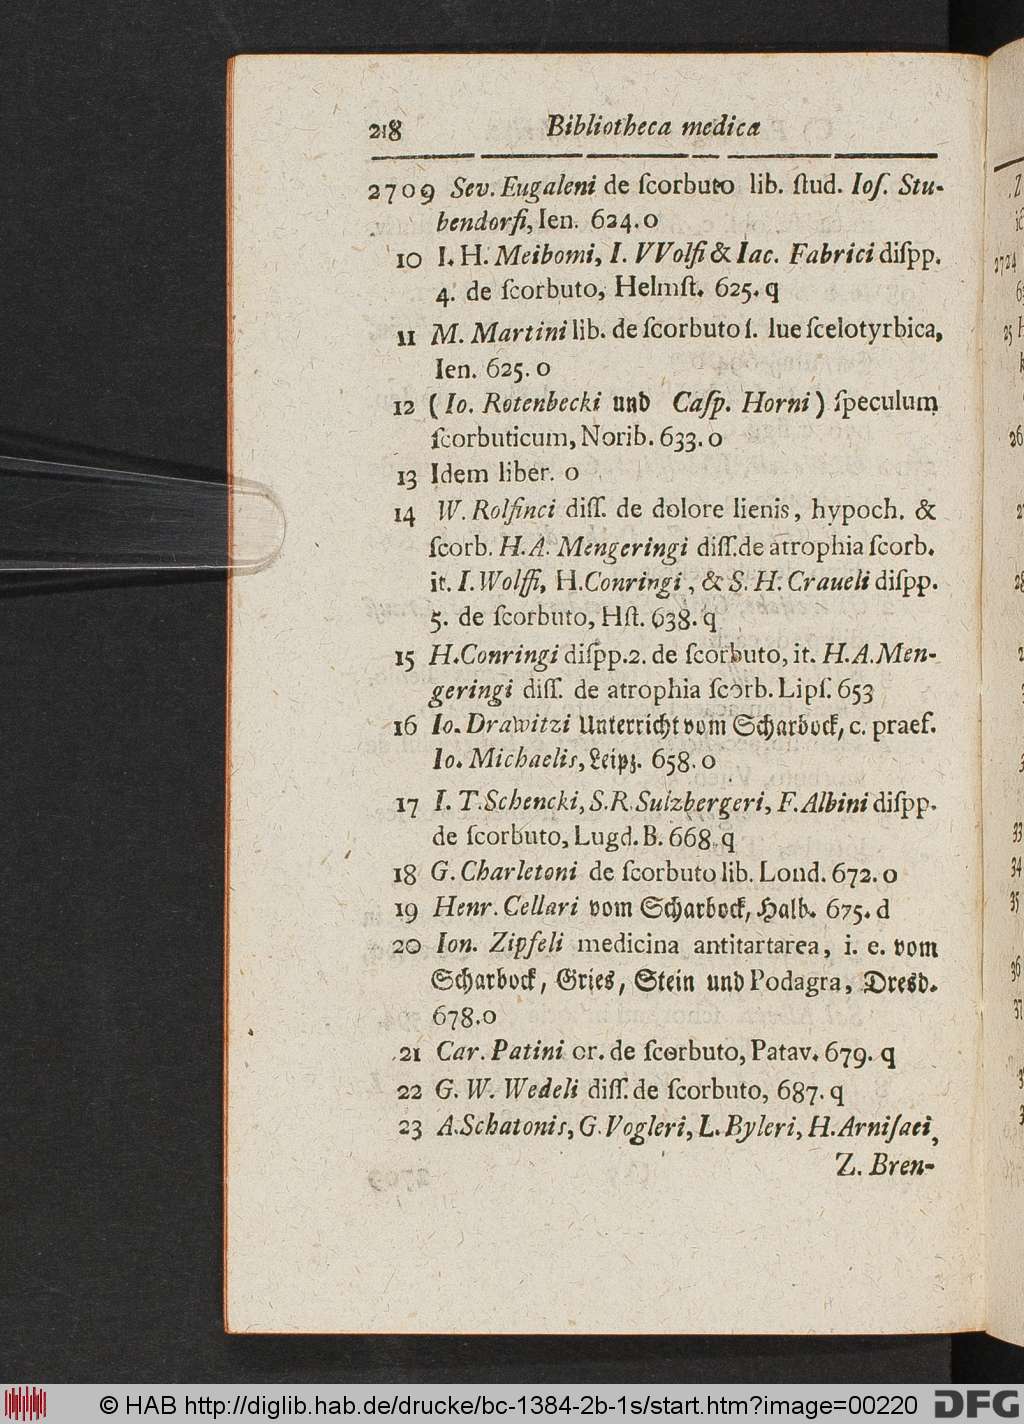 218 Bibliotheca medica
2709 Sev. Eugaleni de ſcorbuto lib. ſtud. Ioſ. Stu-
bendorfi, Ien. 624. o
10 I. H. Meibomi, I. VVolfi & Iac. Fabrici diſpp.
4. de ſcorbuto, Helmſt. 625. q
11 M. Martini lib. de ſcorbuto ſ. lue ſcelotyrbica,
Ien. 625. o
12 (Io. Rotenbecki und Caſp. Horni) ſpeculum
ſcorbuticum, Norib. 633. o
13 Idem liber. o
14 W. Rolfinci diſſ. de dolore lienis, hypoch. &
ſcorb. H. A. Mengeringi diſſ. de atrophia ſcorb.
it. I. Wolffi, H. Conringi, & S. H. Craueli diſpp.
5. de ſcorbuto, Hſt. 638. q
15 H. Conringi diſpp. 2. de ſcorbuto, it. H. A. Men-
geringi diſſ. de atrophia ſcorb. Lipſ. 653
16 Io. Drawitzi Unterricht vom Scharbock, c. praef.
Io. Michaelis, Leipz. 658. o
17 I. T. Schencki, S. R. Sulzbergeri, F. Albini diſpp.
de ſcorbuto, Lugd. B. 668. q
18 G. Charletoni de ſcorbuto lib. Lond. 672. o
19 Henr. Cellari vom Scharbock, Halb. 675. d
20 Ion. Zipfeli medicina antitartarea, i. e. vom
Scharbock, Gries, Stein und Podagra, Dresd.
678. o
21 Car. Patini or. de ſcorbuto, Patav. 679. q
22 G. W. Wedeli diſſ. de ſcorbuto, 687. q
23 A. Schatonis, G. Vogleri, L. Byleri, H. Arniſaei,
Z. Bren-
2724
25
26
33
34
35
36
37
© HAB http://diglib.hab.de/drucke/bc-1384-2b-1s/start.htm?image=00220 DFG